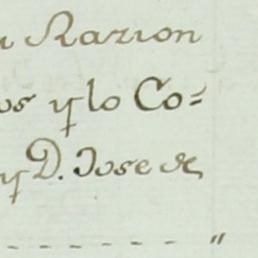 u Razion
os y lo Co=
y D. Jose de
------- "